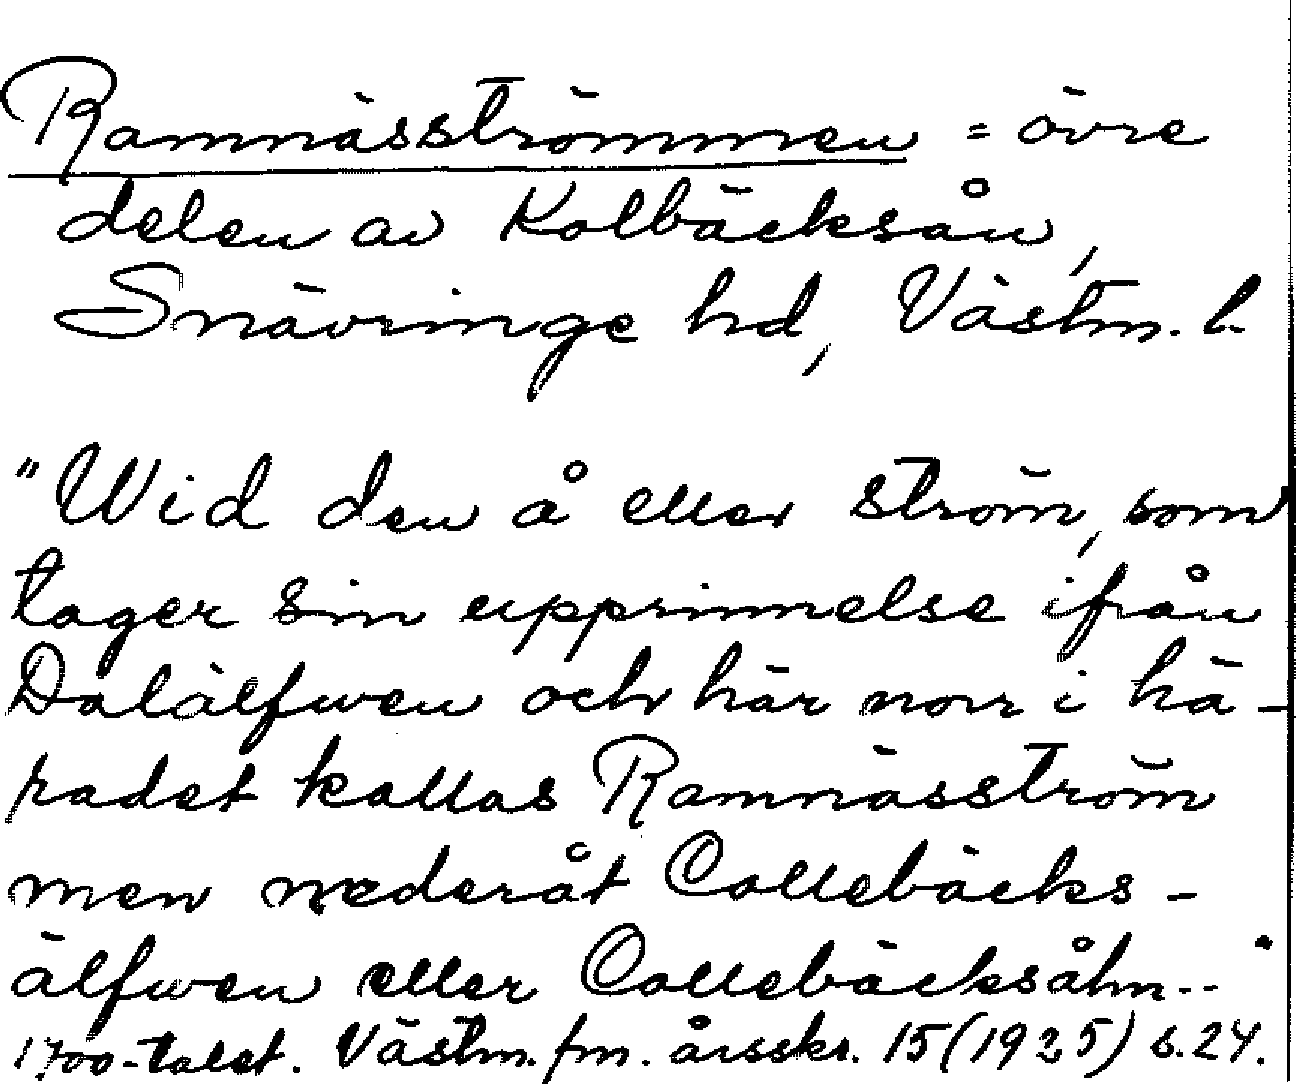 Ramnäsströmmen = övre
delen av Kolbäcksån,
Snävringe hd, Västm. l.
"Wid den å eller ström, som
tager sin upprinnelse ifrån
Dalälfwen och här norr i hä-
radet kallas Ramnäsström
men nederåt Collebäcks-
älfwen eller Collebäcksåhn.."
1700-talet. Västm. fm. årsskr. 15 (1925) s. 24.